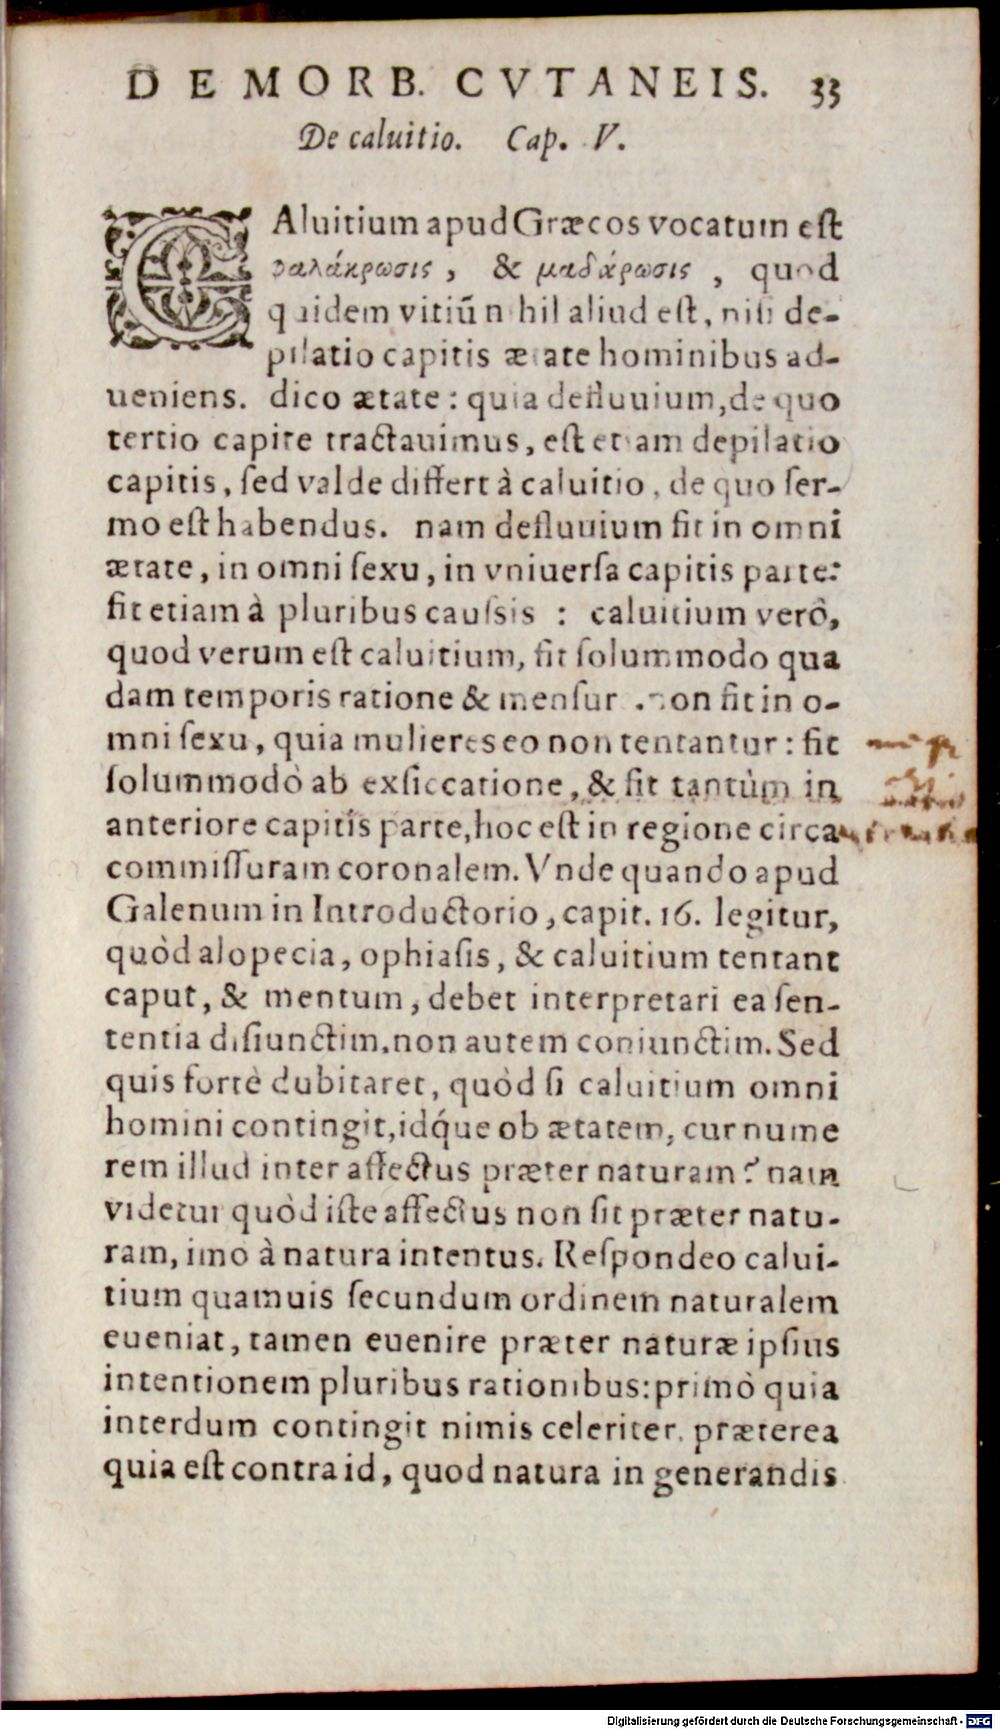 DE MORB. CVTANEIS. 33
De caluitio. Cap. V.
CAluitium apud Græcos vocatum est
φαλάκρωσις, & μαδάρωσις, quod
quidem vitiū nihil aliud est, nisi de-
pilatio capitis ætate hominibus ad-
ueniens. dico ætate: quia defluuium, de quo
tertio capite tractauimus, est etiam depilatio
capitis, sed valde differt à caluitio, de quo ser-
mo est habendus. nam defluuium fit in omni
ætate, in omni sexu, in vniuersa capitis parte:
fit etiam à pluribus caussis: caluitium verò,
quod verum est caluitium, fit solummodo qua
dam temporis ratione & mensur. non fit in o-
mni sexu, quia mulieres eo non tentantur: fit
solummodò ab exsiccatione, & fit tantùm in
anteriore capitis parte, hoc est in regione circa
commissuram coronalem. Vnde quando apud
Galenum in Introductorio, capit. 16. legitur,
quòd alopecia, ophiasis, & caluitium tentant
caput, & mentum, debet interpretari ea sen-
tentia disiunctim, non autem coniunctim. Sed
quis fortè dubitaret, quòd si caluitium omni
homini contingit, idq́ue ob ætatem, cur nume
rem illud inter affectus præter naturam? nam
videtur quòd iste affectus non sit præter natu-
ram, imo à natura intentus. Respondeo calui-
tium quamuis secundum ordinem naturalem
eueniat, tamen euenire præter naturæ ipsius
intentionem pluribus rationibus: primò quia
interdum contingit nimis celeriter, præterea
quia est contra id, quod natura in generandis
Digitalisierung gefördert durch die Deutsche Forschungsgemeinschaft - DFG